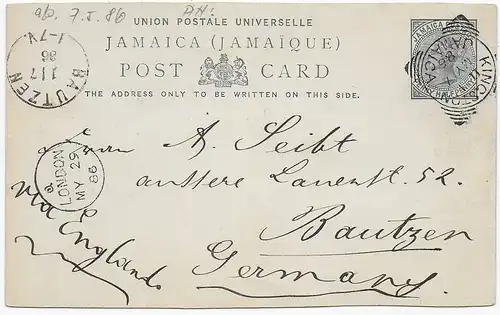 ab. 7.5.86
UNION POSTALE UNIVERSELLE
JAMAICA (JAMAÏQUE)
POST CARD
THE ADDRESS ONLY TO BE WRITTEN ON THIS SIDE.
BAUTZEN
86
1-7V.
KINGSTON
JAMAICA
Herrn A. Seibt
äussere Lauenst. 52.
Bautzen
Germany.
via England
LONDON
MY 29
86